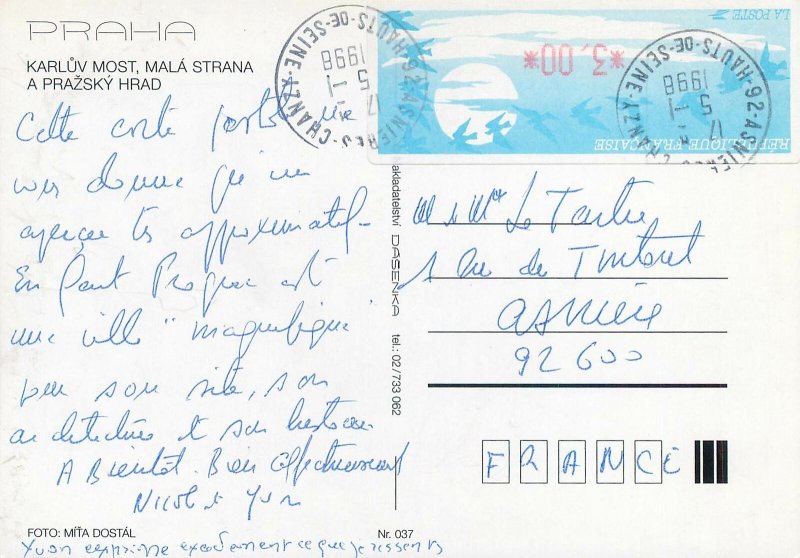 PRAHA
KARLŮV MOST, MALÁ STRANA
A PRAŽSKÝ HRAD
Cette carte postale ne
vous donne qu'un
aperçu très approximatif.
En fait Prague est
une ville "magnifique"
par son site, son
architecture et son histoire.
A Bientôt. Bien affectueusement
Nicole et Yvon
FOTO: MÍŤA DOSTÁL
Nr. 037
Yvon exprime exactement ce que je ressens
akladatelství DASENKA tel.: 02/733 062
LA POSTE
*3,00*
REPUBLIQUE FRANÇAISE
92-ASNIERES-CHANZY
HAUTS-DE-SEINE
17
5-1
1998
92-ASNIERES CHANZY
HAUTS-DE-SEINE
17
5-1
1998
M & Mme Le Tartre
Rue de Tintoret
ASNIERES
92600
FRANCE